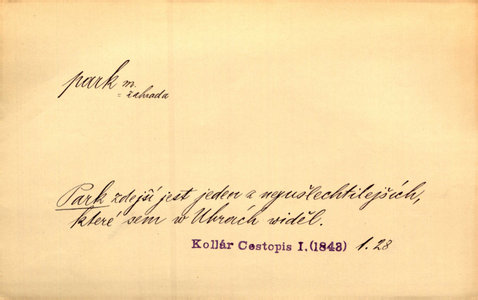 park m.
= zahrada
Park zdejší jest jeden z nejušlechtilejších,
které sem w Uhrách widěl.
Kollár Cestopis I. (1843) 1. 28